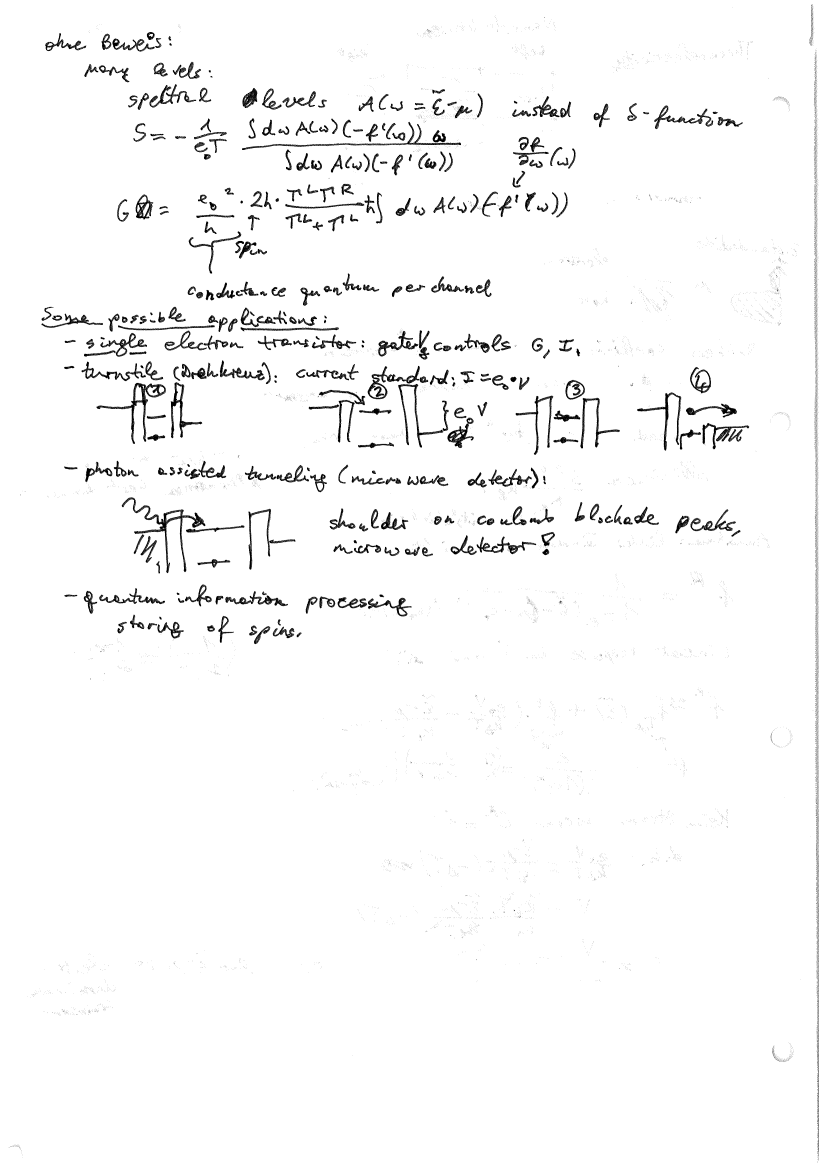 ohne Beweis:
many levels:
spectral levels A(ω = ε̃ - μ) instead of δ-function
S = - 1/(e₀T) ∫dω A(ω)(-f'(ω)) ω / ∫dω A(ω)(-f'(ω))
∂f/∂ω (ω)
G = e₀²/h · 2h · Γᴸ Γᴿ / (Γᴸ + Γᴸ) ħ∫ dω A(ω)(-f'(ω))
spin
conductance quantum per channel
Some possible applications:
- single electron transistor: gate controls G, I,
- turnstile (Drehkreuz): current standard; I = e₀·ν
① ② ③ ④
e₀V
- photon assisted tunneling (microwave detector):
shoulder on coulomb blockade peaks,
microwave detector!
- quantum information processing
storing of spins.